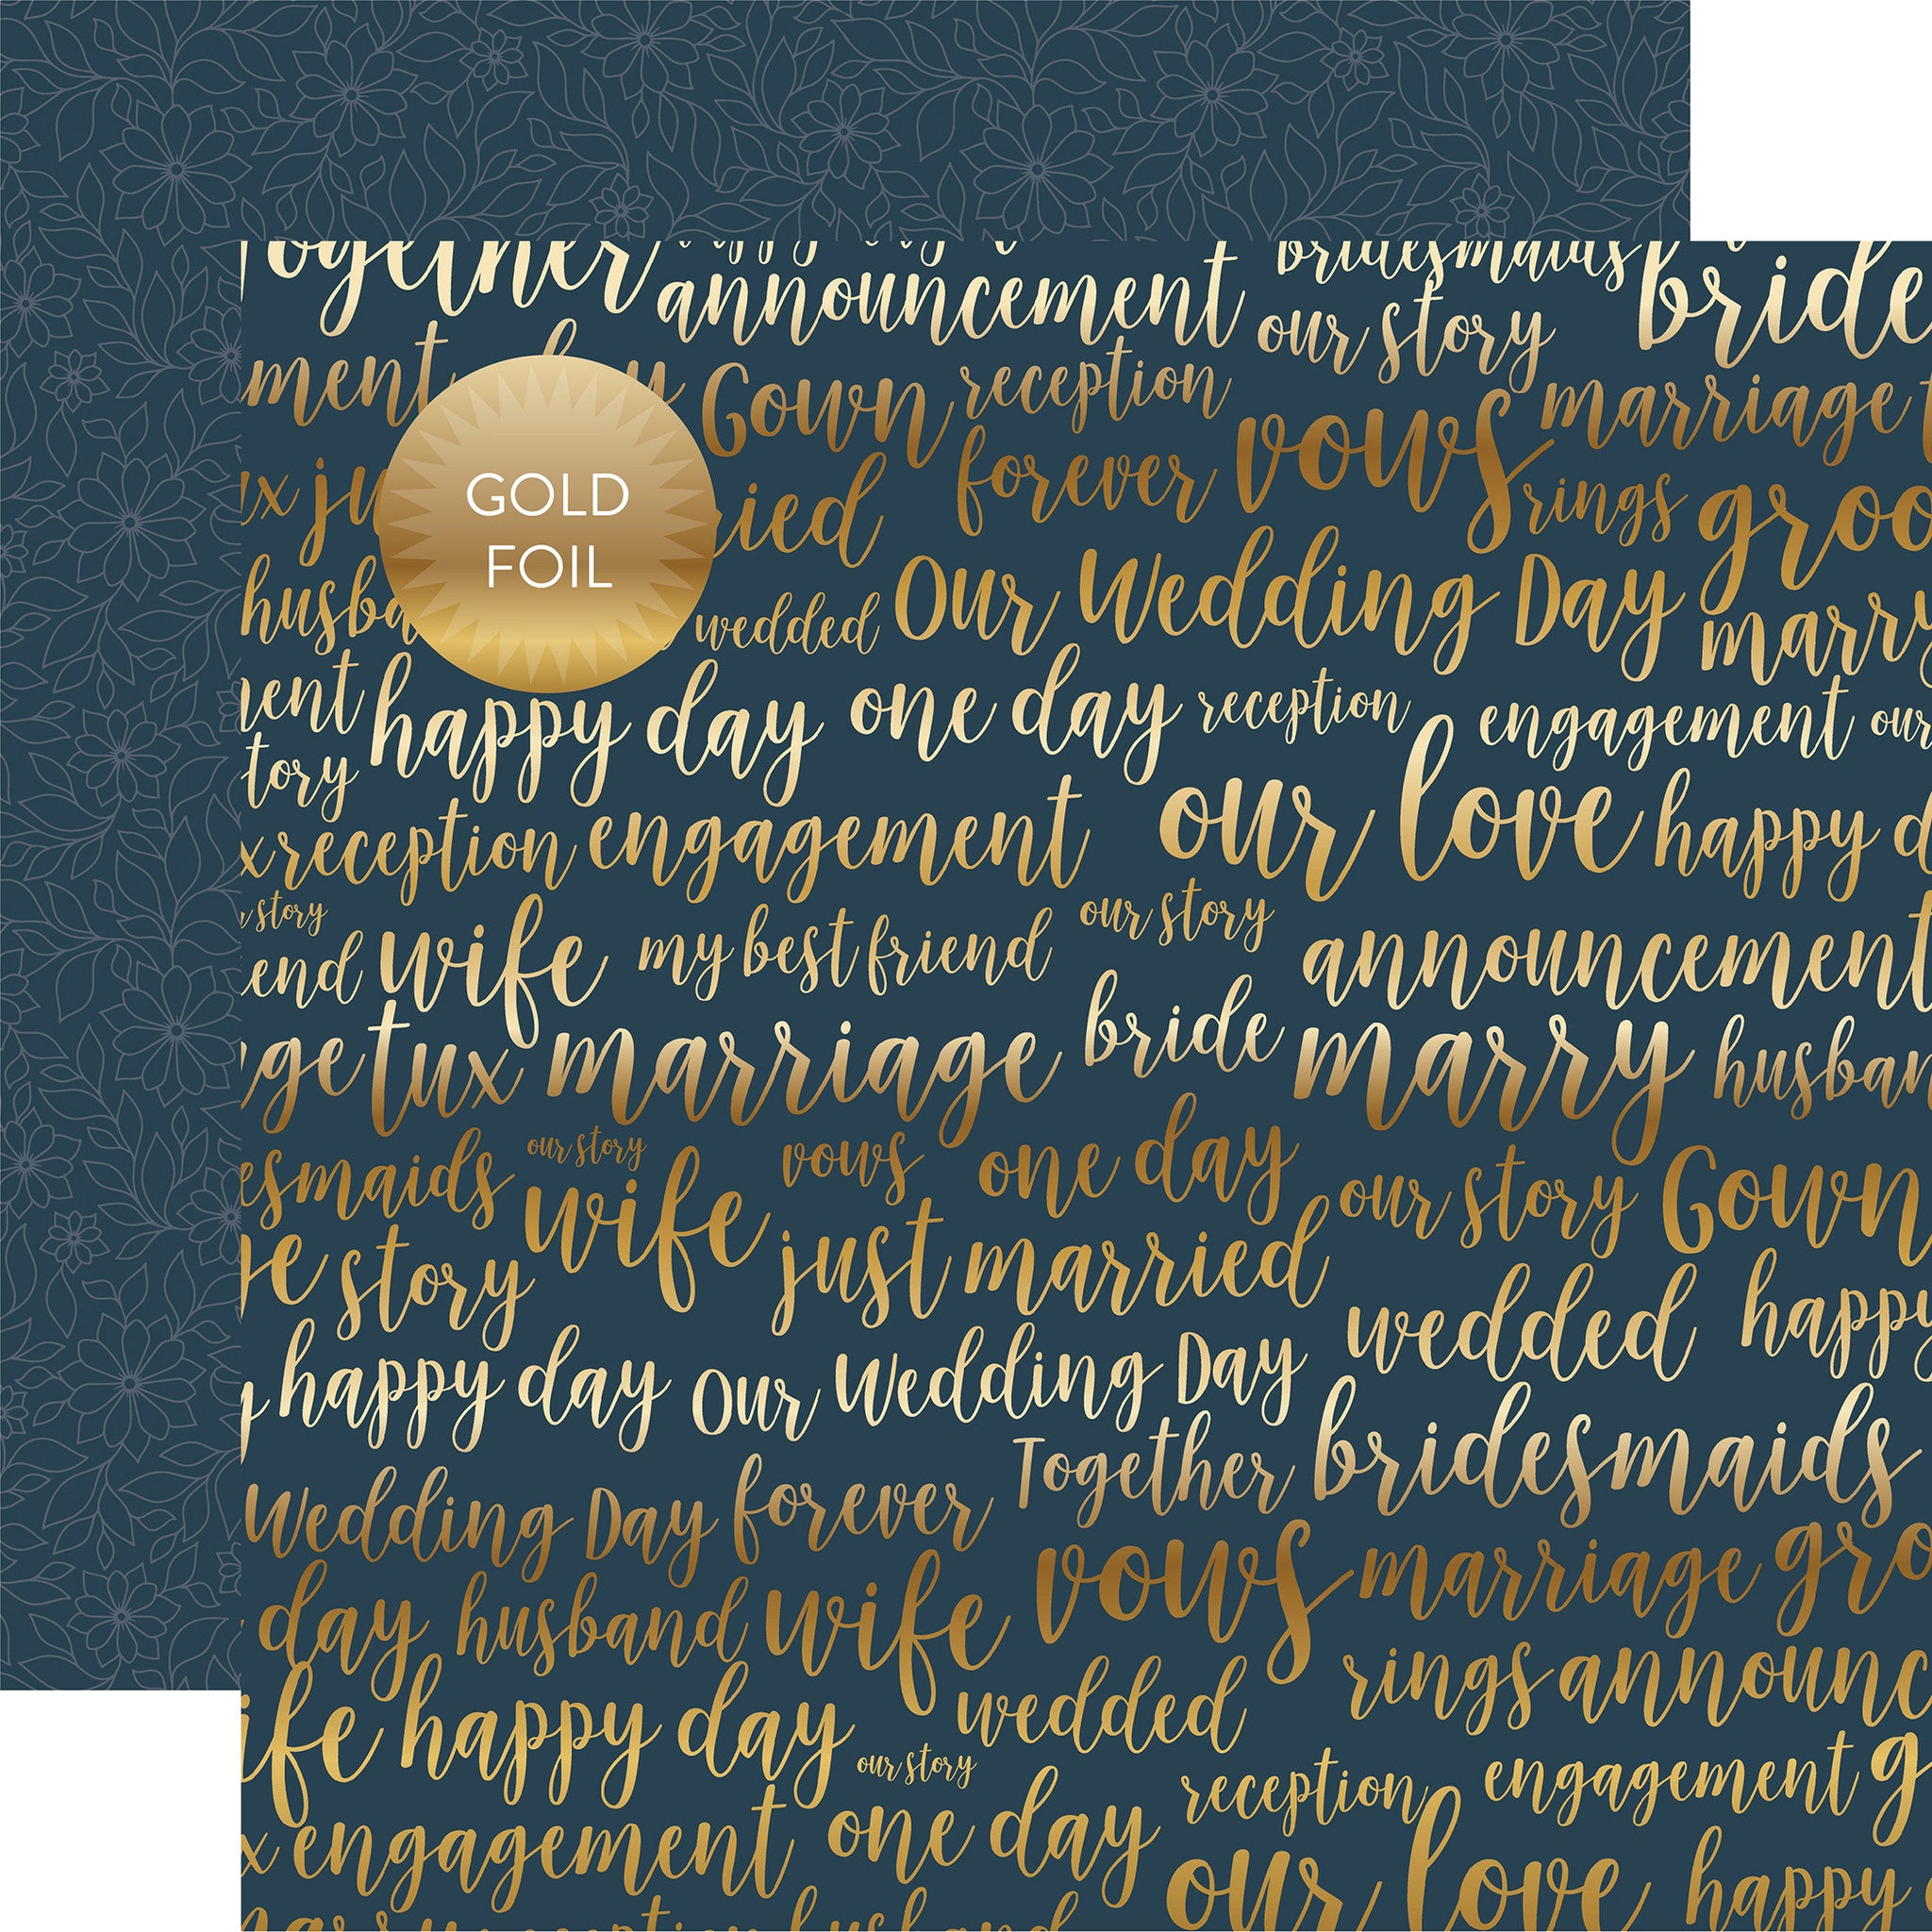 Together
announcement
bridesmaids
bride
our story
ment
Gown
reception
marriage
GOLD
FOIL
forever
vows
rings
wedded
Our Wedding Day
marry
happy day
one day
reception
engagement
our
tory
reception
engagement
our love
happy
story
our story
end
wife
my best friend
announcement
bride
tux
marriage
marry
our story
vows
one day
our story
Gown
esmaids
wife
story
just married
wedded
happy
happy day
Our Wedding Day
Together
bridesmaids
Wedding Day
forever
vows
marriage
day
husband
wife
rings
wedded
happy day
our story
reception
engagement
engagement
one day
our love
happy